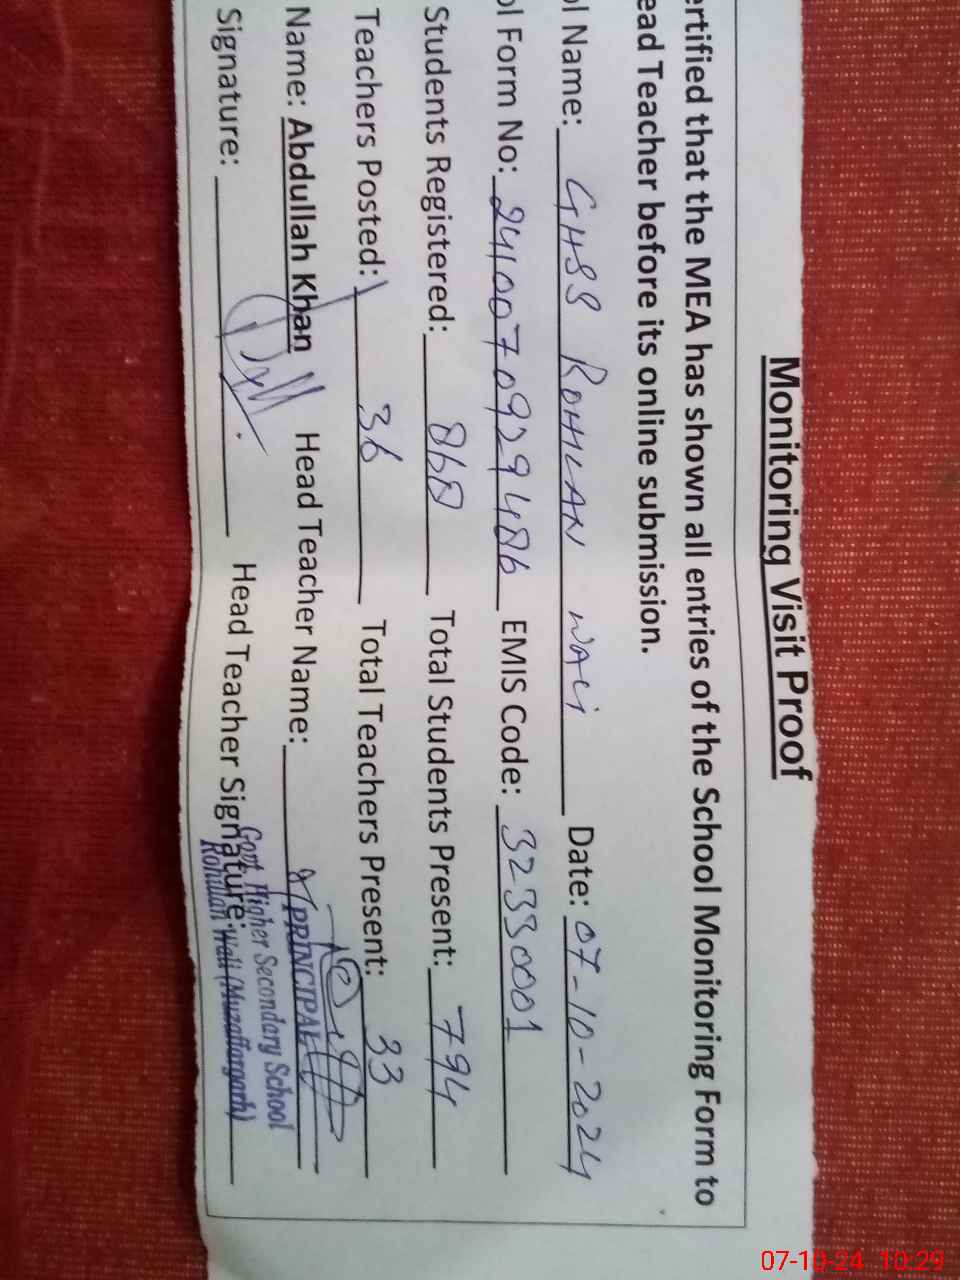 Monitoring Visit Proof
ertified that the MEA has shown all entries of the School Monitoring Form to
ead Teacher before its online submission.
ol Name: GHSS ROHILAN WALI Date: 07-10-2024
ol Form No: 241007092948b EMIS Code: 32330001
Students Registered: 868 Total Students Present: 794
Teachers Posted: 36 Total Teachers Present: 33
Name: Abdullah Khan Head Teacher Name:
PRINCIPAL
Signature: Head Teacher Signature:
Govt. Higher Secondary School
Rohillan Wali (Muzaffargarh)
07-10-24 10:29